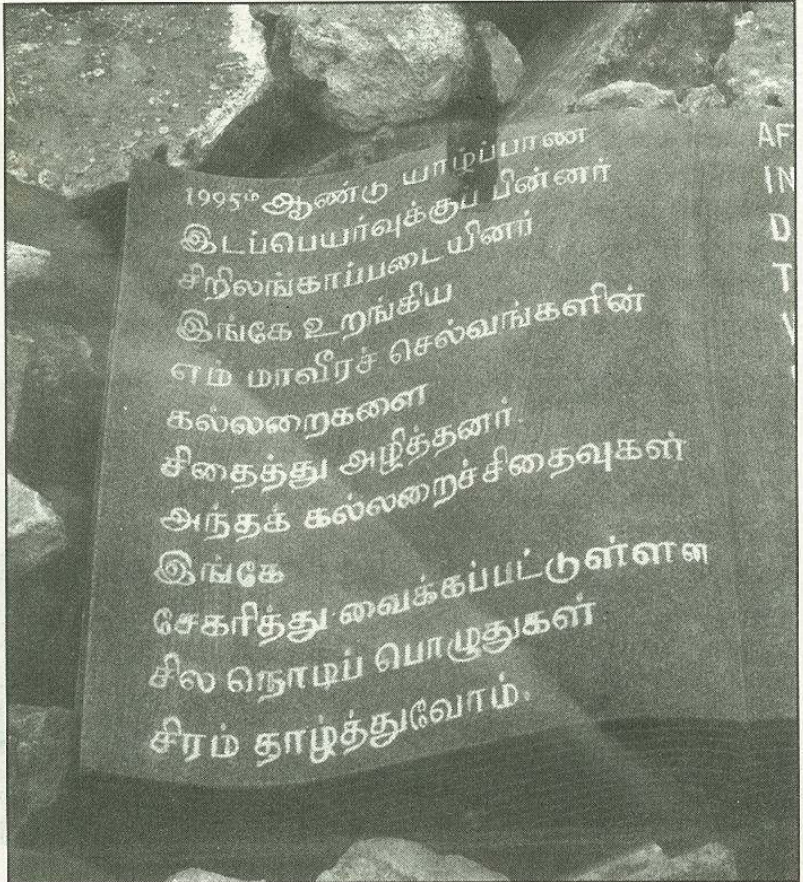 1995ம் ஆண்டு யாழ்ப்பாண
இடப்பெயர்வுக்குப் பின்னர்
சிறிலங்காப்படையினர்
இங்கே உறங்கிய
எம் மாவீரச் செல்வங்களின்
கல்லறைகளை
சிதைத்து அழித்தனர்.
அந்தக் கல்லறைச்சிதைவுகள்
இங்கே
சேகரித்து வைக்கப்பட்டுள்ளன
சில நொடிப் பொழுதுகள்
சிரம் தாழ்த்துவோம்.
AF
IN
D
T